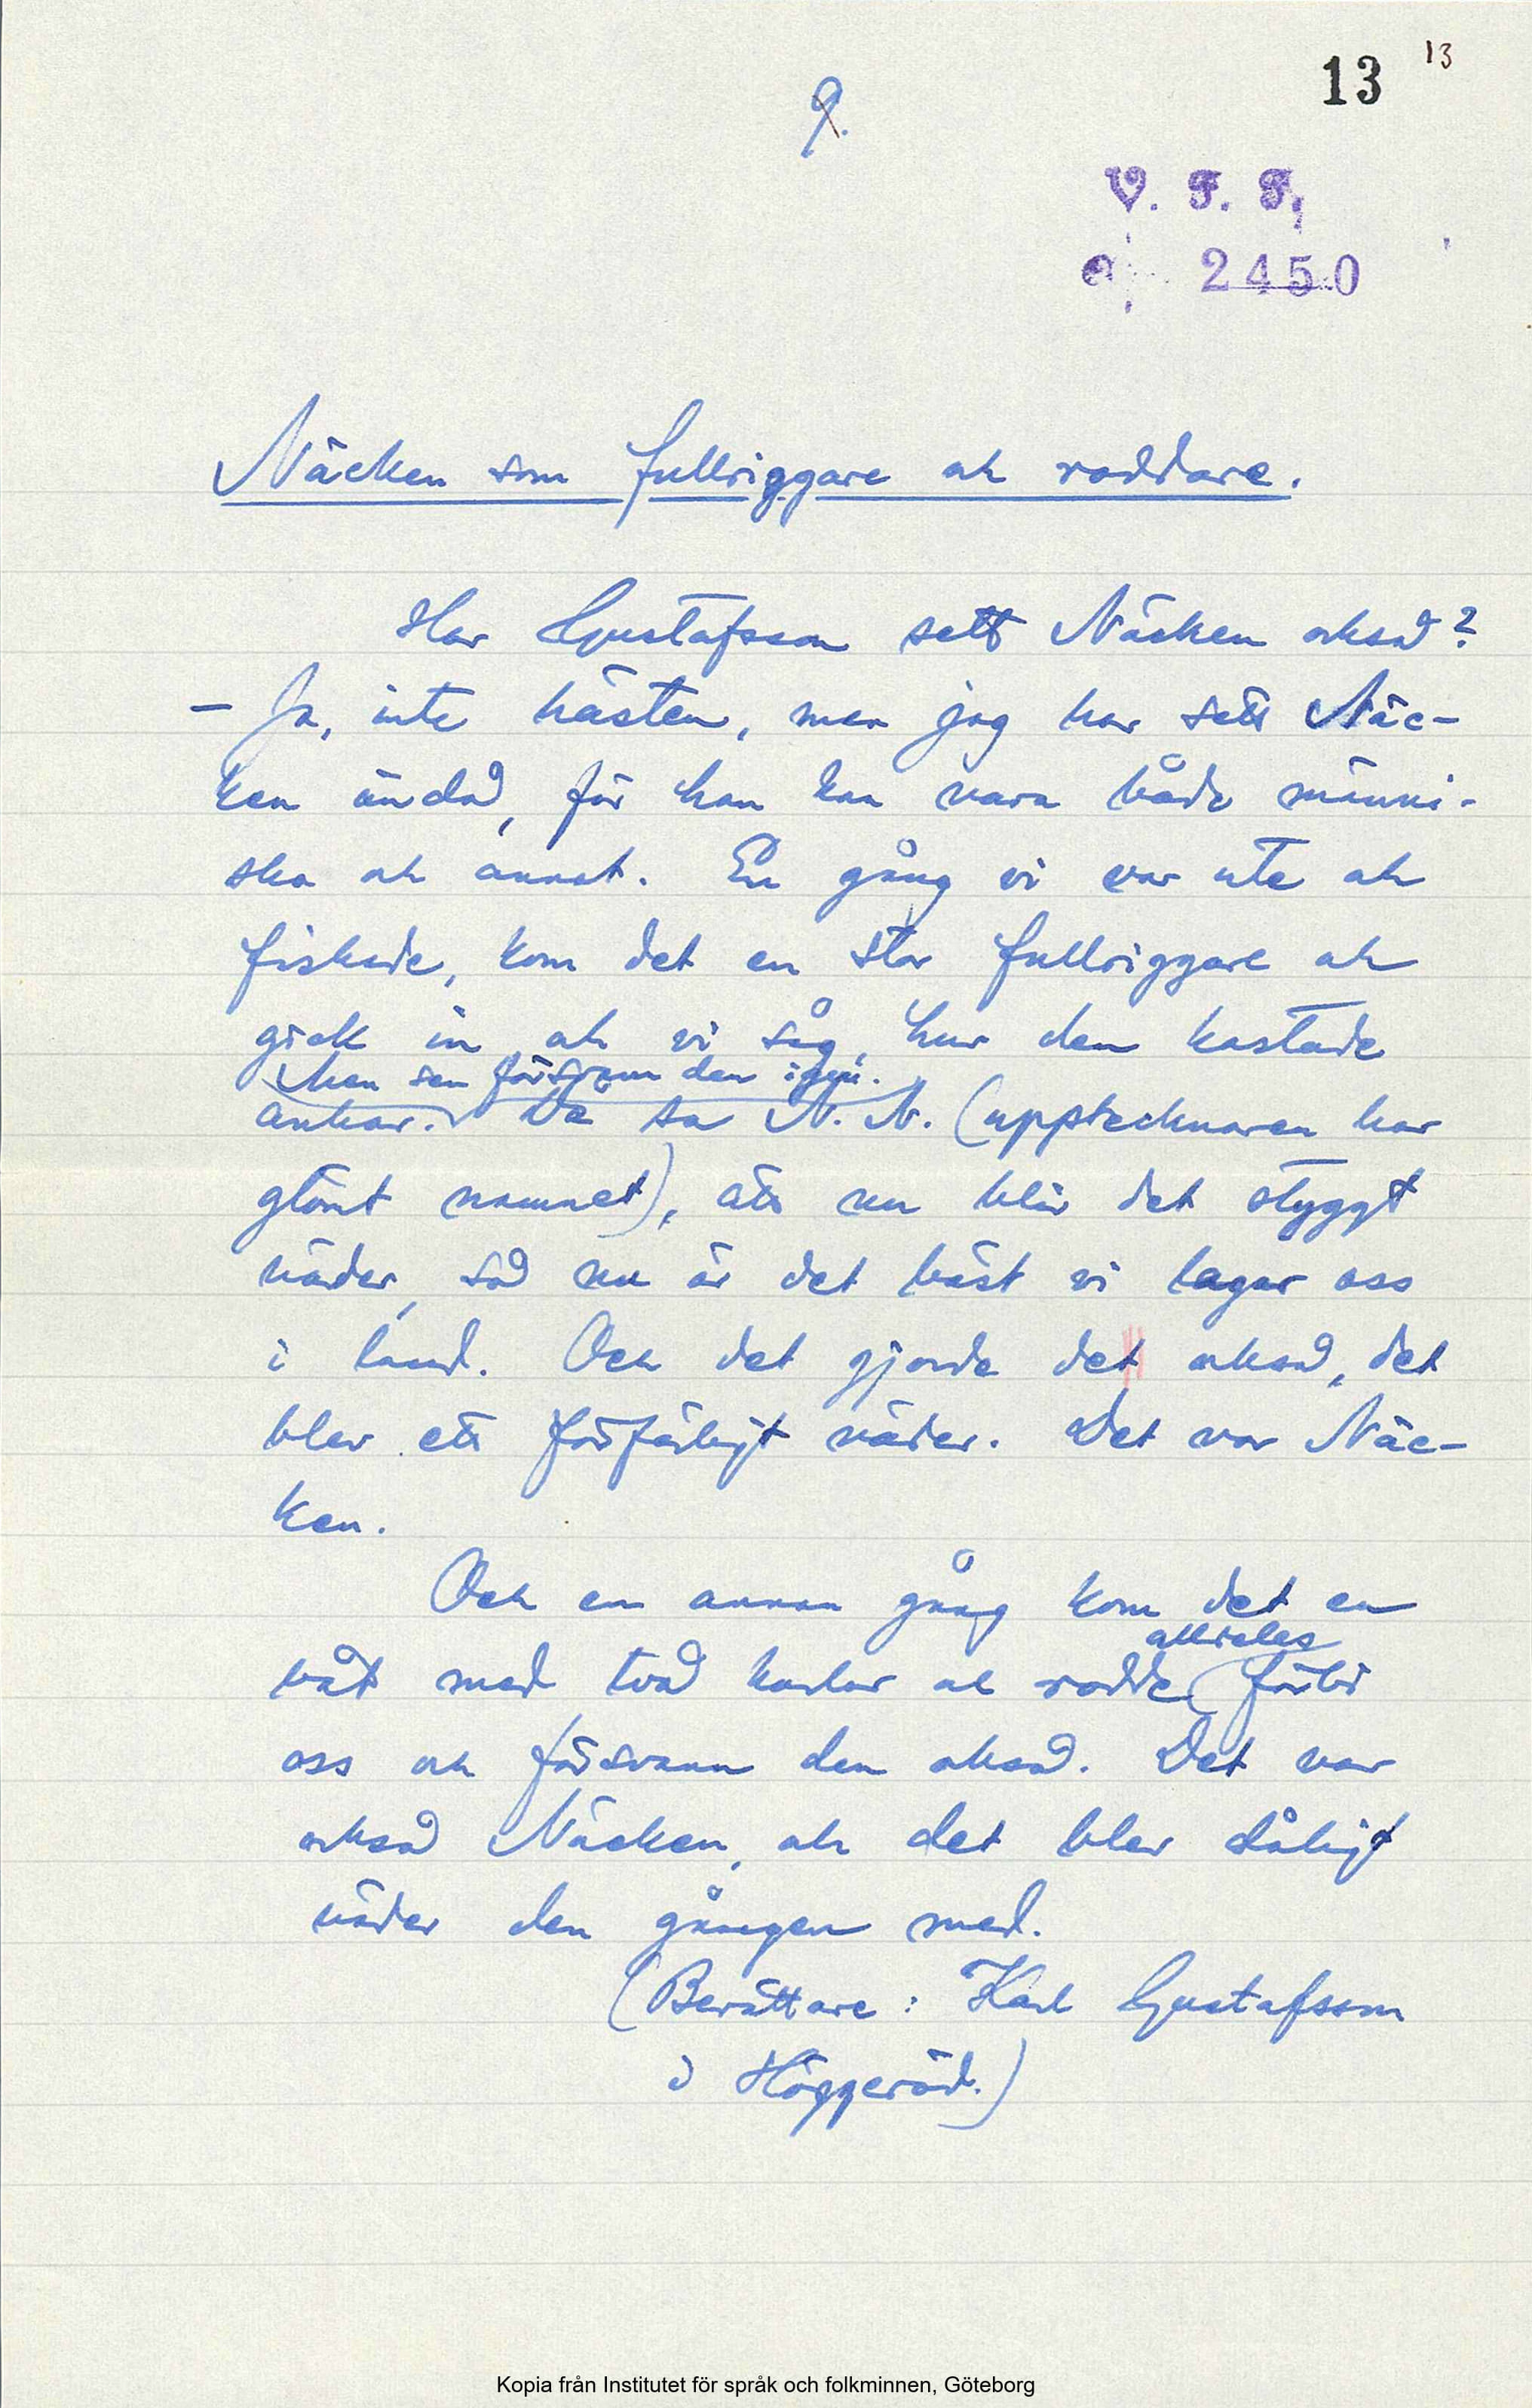 13 13
9.
V. F. F.
2450
Näcken som fullriggare och roddare.
Har Gustafsson sett Näcken också?
– Ja, inte hästen, men jag har sett Näc-
ken ändå, för han kan vara både männi-
ska och annat. En gång vi var ute och
fiskade, kom det en stor fullriggare och
gick in och vi såg, hur den kastade
Men sen försvann den igen.
ankar. Då sa N. N. (upptecknaren har
glömt namnet), att nu blir det styggt
väder, så nu är det bäst vi lagar oss
i land. Och det gjorde det också, det
blev ett förfärligt väder. Det var Näc-
ken.
Och en annan gång kom det en
alldeles
båt med två karlar och rodde förbi
oss och försvann den också. Det var
också Näcken, och det blev dåligt
väder den gången med.
(Berättare: Karl Gustafsson
i Höggeröd.)
Kopia från Institutet för språk och folkminnen, Göteborg